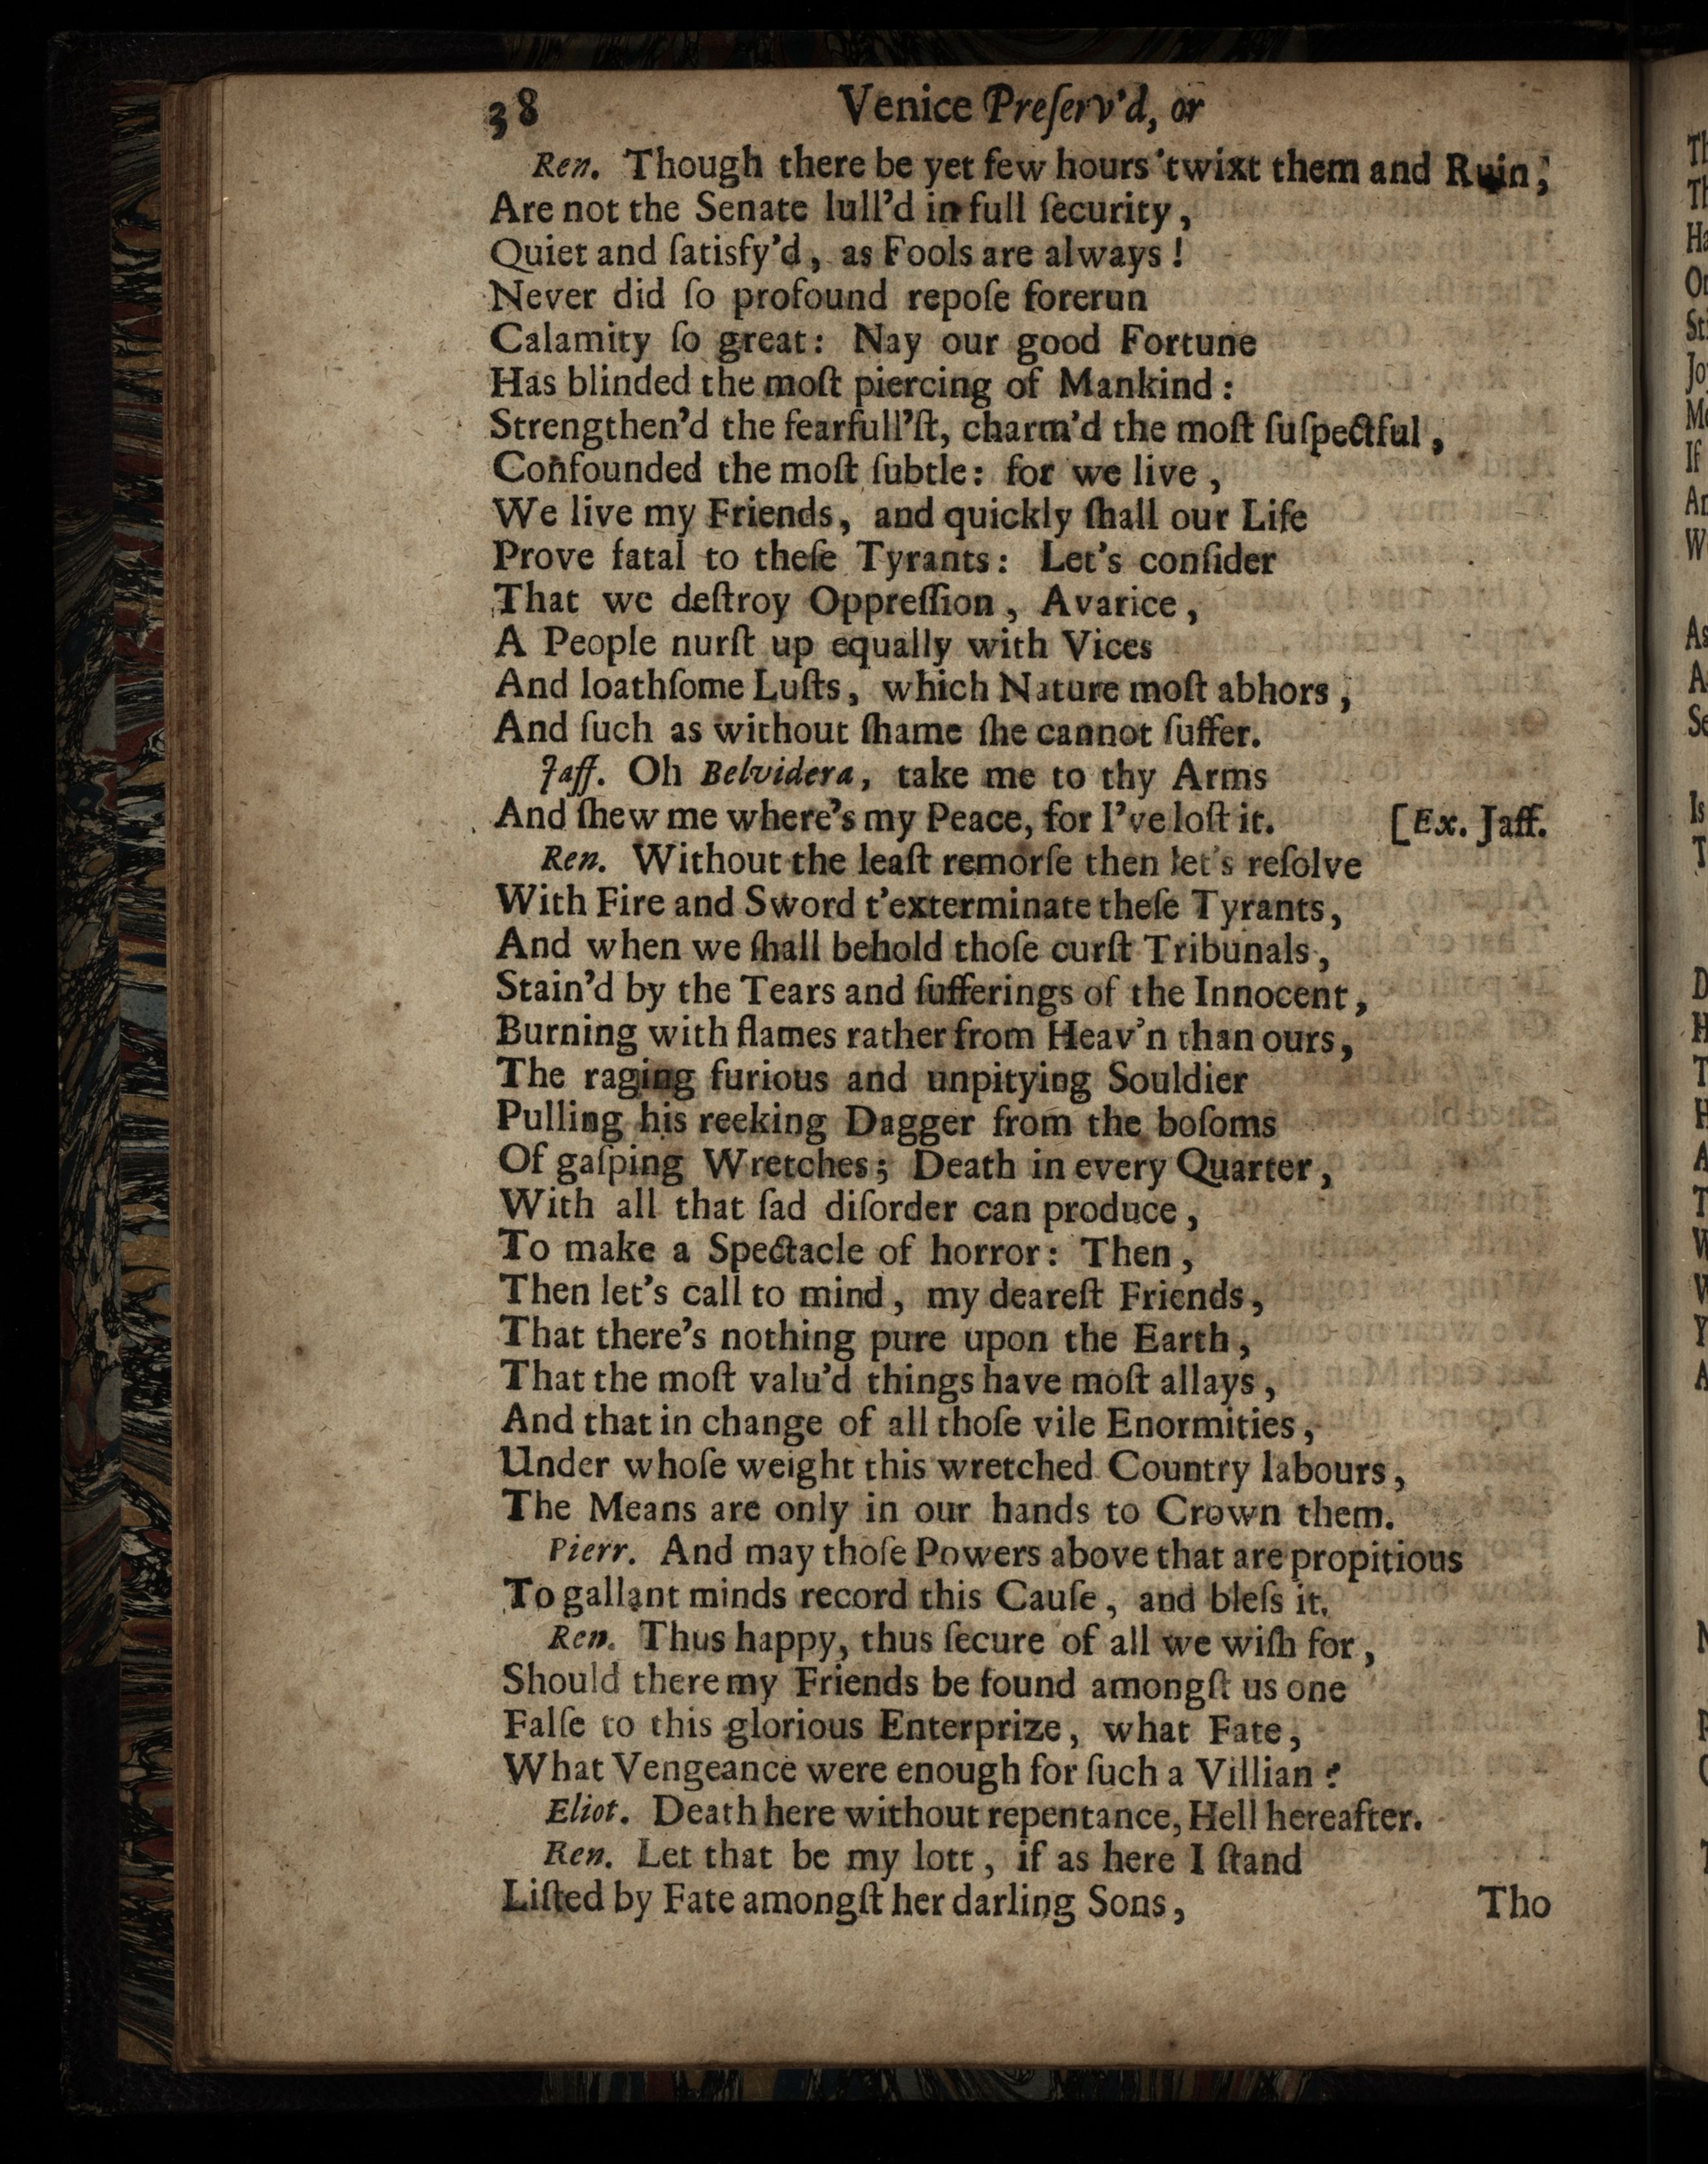 38 Venice Preſerv'd, or
Ren. Though there be yet few hours 'twixt them and Ruin,
Are not the Senate lull'd in full ſecurity,
Quiet and ſatisfy'd, as Fools are always!
Never did ſo profound repoſe forerun
Calamity ſo great: Nay our good Fortune
Has blinded the moſt piercing of Mankind:
Strengthen'd the fearfull'ſt, charm'd the moſt ſuſpectful,
Confounded the moſt ſubtle: for we live,
We live my Friends, and quickly ſhall our Life
Prove fatal to theſe Tyrants: Let's conſider
That we deſtroy Oppreſſion, Avarice,
A People nurſt up equally with Vices
And loathſome Luſts, which Nature moſt abhors,
And ſuch as without ſhame ſhe cannot ſuffer.
Jaff. Oh Belvidera, take me to thy Arms
And ſhew me where's my Peace, for I've loſt it. [Ex. Jaff.
Ren. Without the leaſt remorſe then let's reſolve
With Fire and Sword t'exterminate theſe Tyrants,
And when we ſhall behold thoſe curſt Tribunals,
Stain'd by the Tears and ſufferings of the Innocent,
Burning with flames rather from Heav'n than ours,
The raging furious and unpitying Souldier
Pulling his reeking Dagger from the boſoms
Of gaſping Wretches; Death in every Quarter,
With all that ſad diſorder can produce,
To make a Spectacle of horror: Then,
Then let's call to mind, my deareſt Friends,
That there's nothing pure upon the Earth,
That the moſt valu'd things have moſt allays,
And that in change of all thoſe vile Enormities,
Under whoſe weight this wretched Country labours,
The Means are only in our hands to Crown them.
Pierr. And may thoſe Powers above that are propitious
To gallant minds record this Cauſe, and bleſs it.
Ren. Thus happy, thus ſecure of all we wiſh for,
Should there my Friends be found amongſt us one
Falſe to this glorious Enterprize, what Fate,
What Vengeance were enough for ſuch a Villian?
Eliot. Death here without repentance, Hell hereafter.
Ren. Let that be my lott, if as here I ſtand
Liſted by Fate amongſt her darling Sons,
Tho